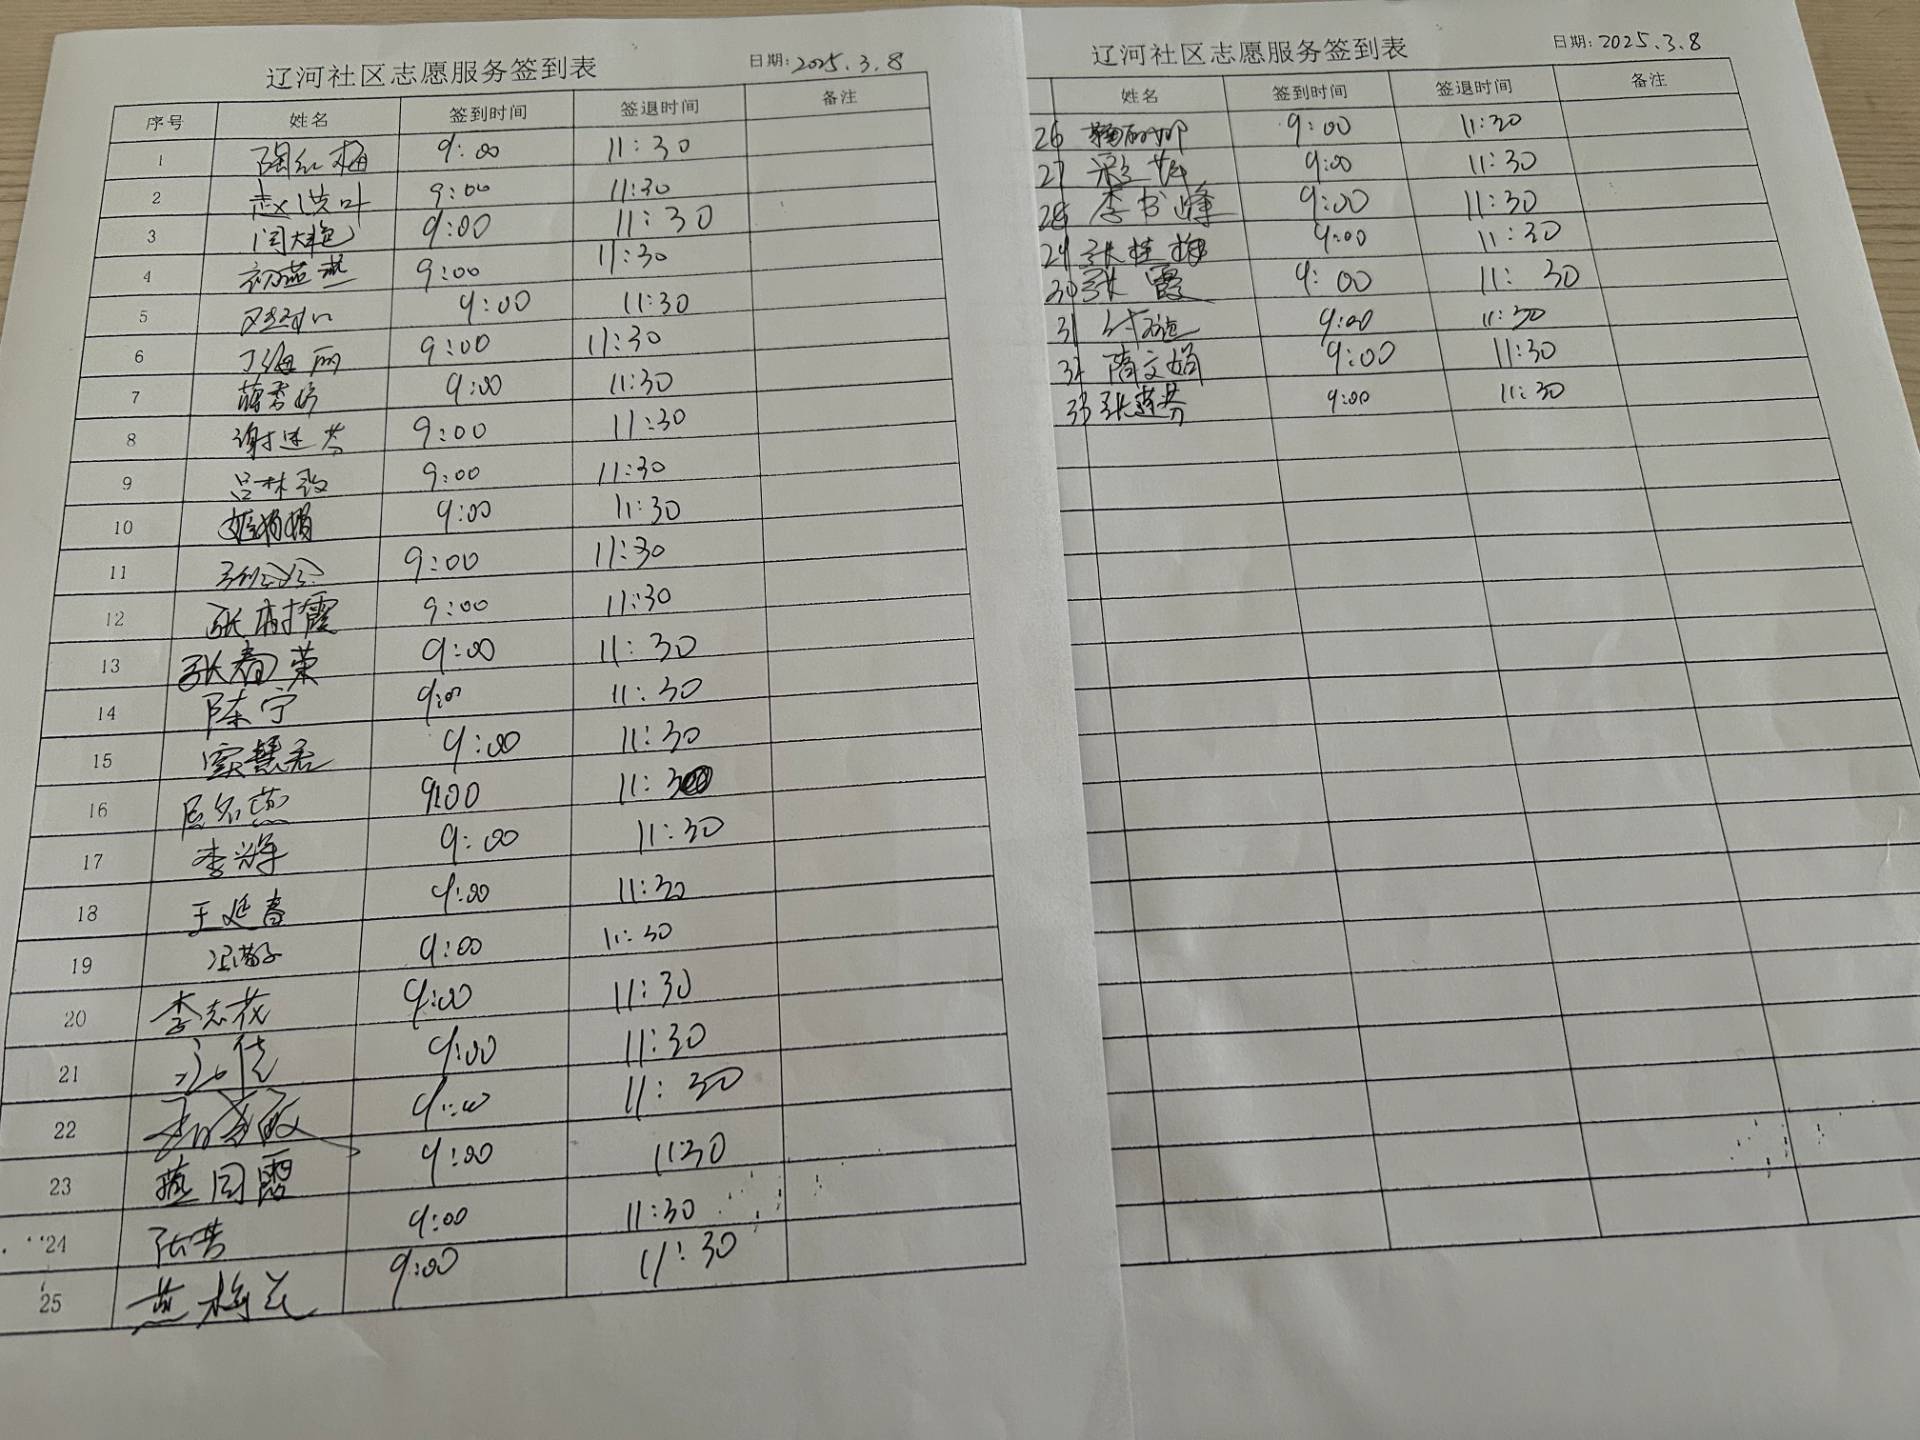 辽河社区志愿服务签到表 日期: 2025.3.8
序号 姓名 签到时间 签退时间 备注
1 陶红梅 9:00 11:30
2 赵洪叶 9:00 11:30
3 9:00 11:30
4 初燕燕 9:00 11:30
5 9:00 11:30
6 丁海丽 9:00 11:30
7 9:00 11:30
8 9:00 11:30
9 9:00 11:30
10 9:00 11:30
11 9:00 11:30
12 张树霞 9:00 11:30
13 张春荣 9:00 11:30
14 陈宁 9:00 11:30
15 窦慧君 9:00 11:30
16 9:00 11:30
17 9:00 11:30
18 王延春 9:00 11:30
19 9:00 11:30
20 李志花 9:00 11:30
21 9:00 11:30
22 9:00 11:30
23 燕同霞 9:00 11:30
24 9:00 11:30
25 9:00 11:30
辽河社区志愿服务签到表 日期: 2025.3.8
姓名 签到时间 签退时间 备注
26 9:00 11:30
27 9:00 11:30
28 李书峰 9:00 11:30
29 张桂梅 9:00 11:30
30 张霞 9:00 11:30
31 9:00 11:30
32 隋文娟 9:00 11:30
33 9:00 11:30